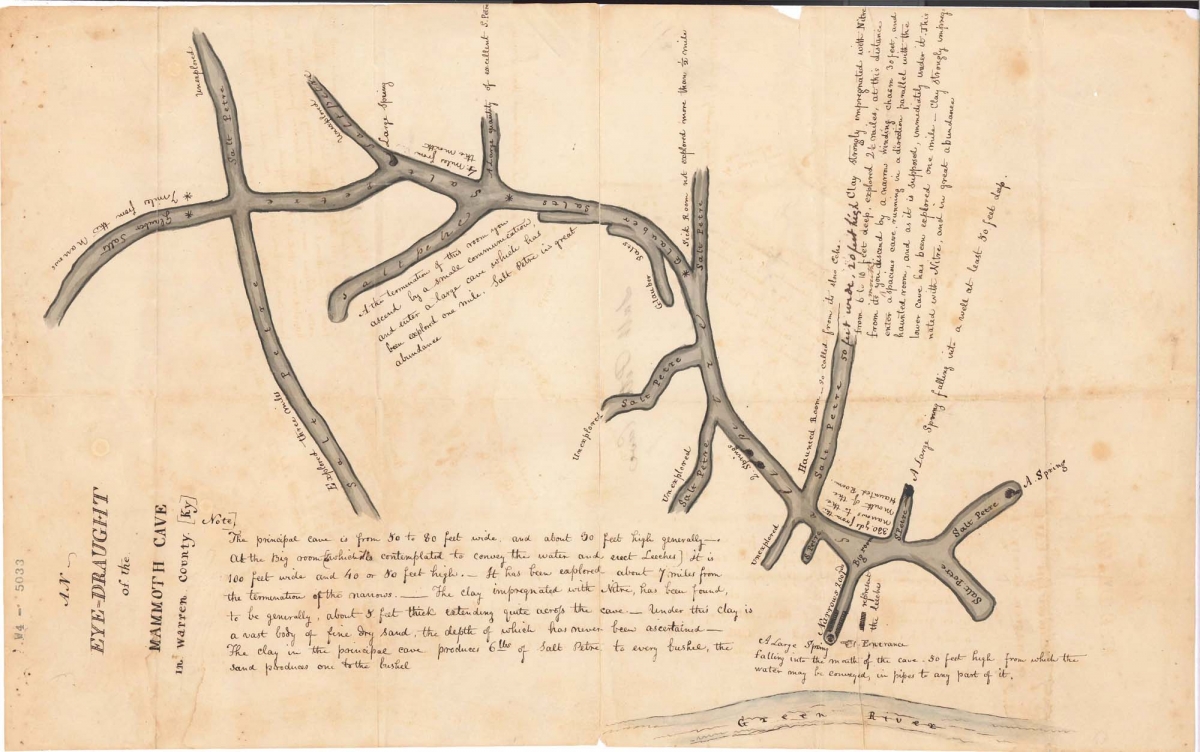 A N
EYE-DRAUGHT
of the
MAMMOTH CAVE
in Warren County [Ky]
V4 - 5033
Unexplored
Salt Petre
7 miles from the Narrows
Glauber Salts
Saltpetre
Explored three miles
Salt petre
Unexplored
Salt Petre
Large Spring
4 miles from
the mouth
A Large quantity of excellent S. Petre
Salts
Glauber
Glauber
Salts
Glauber Salts
At the termination of this room you
ascend by a small communication,
and enter a large cave which has
been explored one mile. Salt Petre in great
abundance
Sick Room not explored more than ½ mile
Salt Petre
Salt Petre
Unexplored
Unexplored
Salt Petre
2 Springs
Haunted Room – so called from its slow Echo.
Salt Petre
50 feet wide, 20 feet high Clay strongly impregnated with Nitre
from 6 to 10 feet deep, explored 2½ miles, at this distance
from its mouth you descend by a narrow winding chasm 30 feet, and
enter a spacious cave, running in a direction parallel with the
haunted room, and as it is supposed, immediately under it. This
lower Cave has been explored one mile – Clay strongly impreg
nated with Nitre, and in great abundance
A Large Spring falling into a well at least 50 feet deep.
A Spring
Salt Petre
Salt Petre
S. Petre
330 yds from the
narrows to the
mouth of the
Haunted Room.
Unexplored
S. Petre
Big room
Narrows
represent
the leeches
Entrance
A Large Spring
falling into the mouth of the cave. 50 feet high from which the
water may be conveyed, in pipes to any part of it.
Green River
Note]
The principal cave is from 50 to 80 feet wide, and about 50 feet high generally –
At the Big room (which it is contemplated to convey the water and erect Leeches) it is
100 feet wide and 40 or 50 feet high. – It has been explored about 7 miles from
the termination of the narrows. — The clay impregnated with Nitre, has been found,
to be generally, about 5 feet thick extending quite across the cave. – Under this clay is
a vast body of fine dry sand, the depth of which has never been ascertained –
The clay in the principal cave produces 6 lbs of Salt Petre to every bushel, the
sand produces one to the bushel